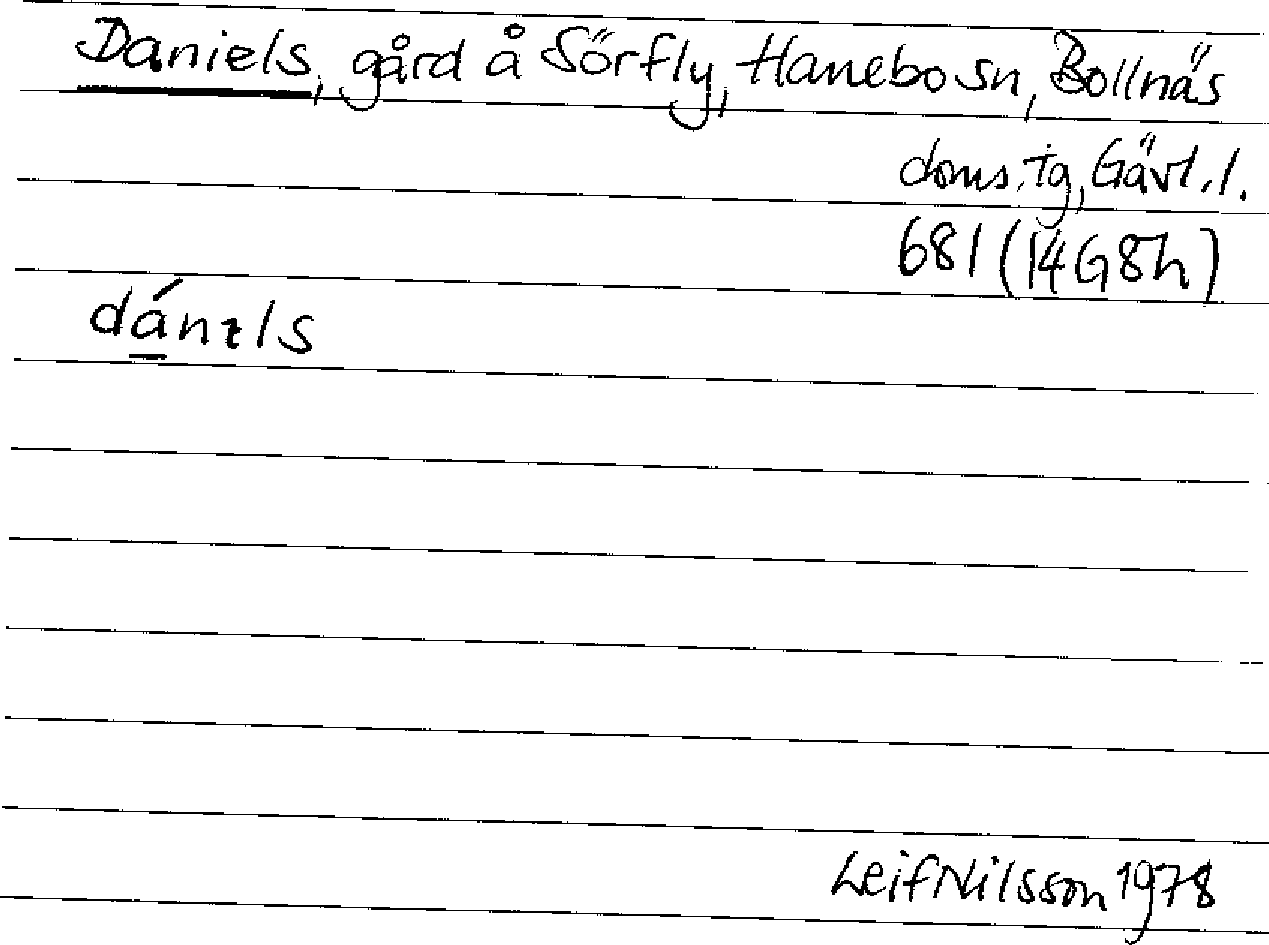 Daniels, gård å Sörfly, Hanebo sn, Bollnäs
doms. tg, Gävl. l.
681 (14G8h)
dánɩls
Leif Nilsson 1978